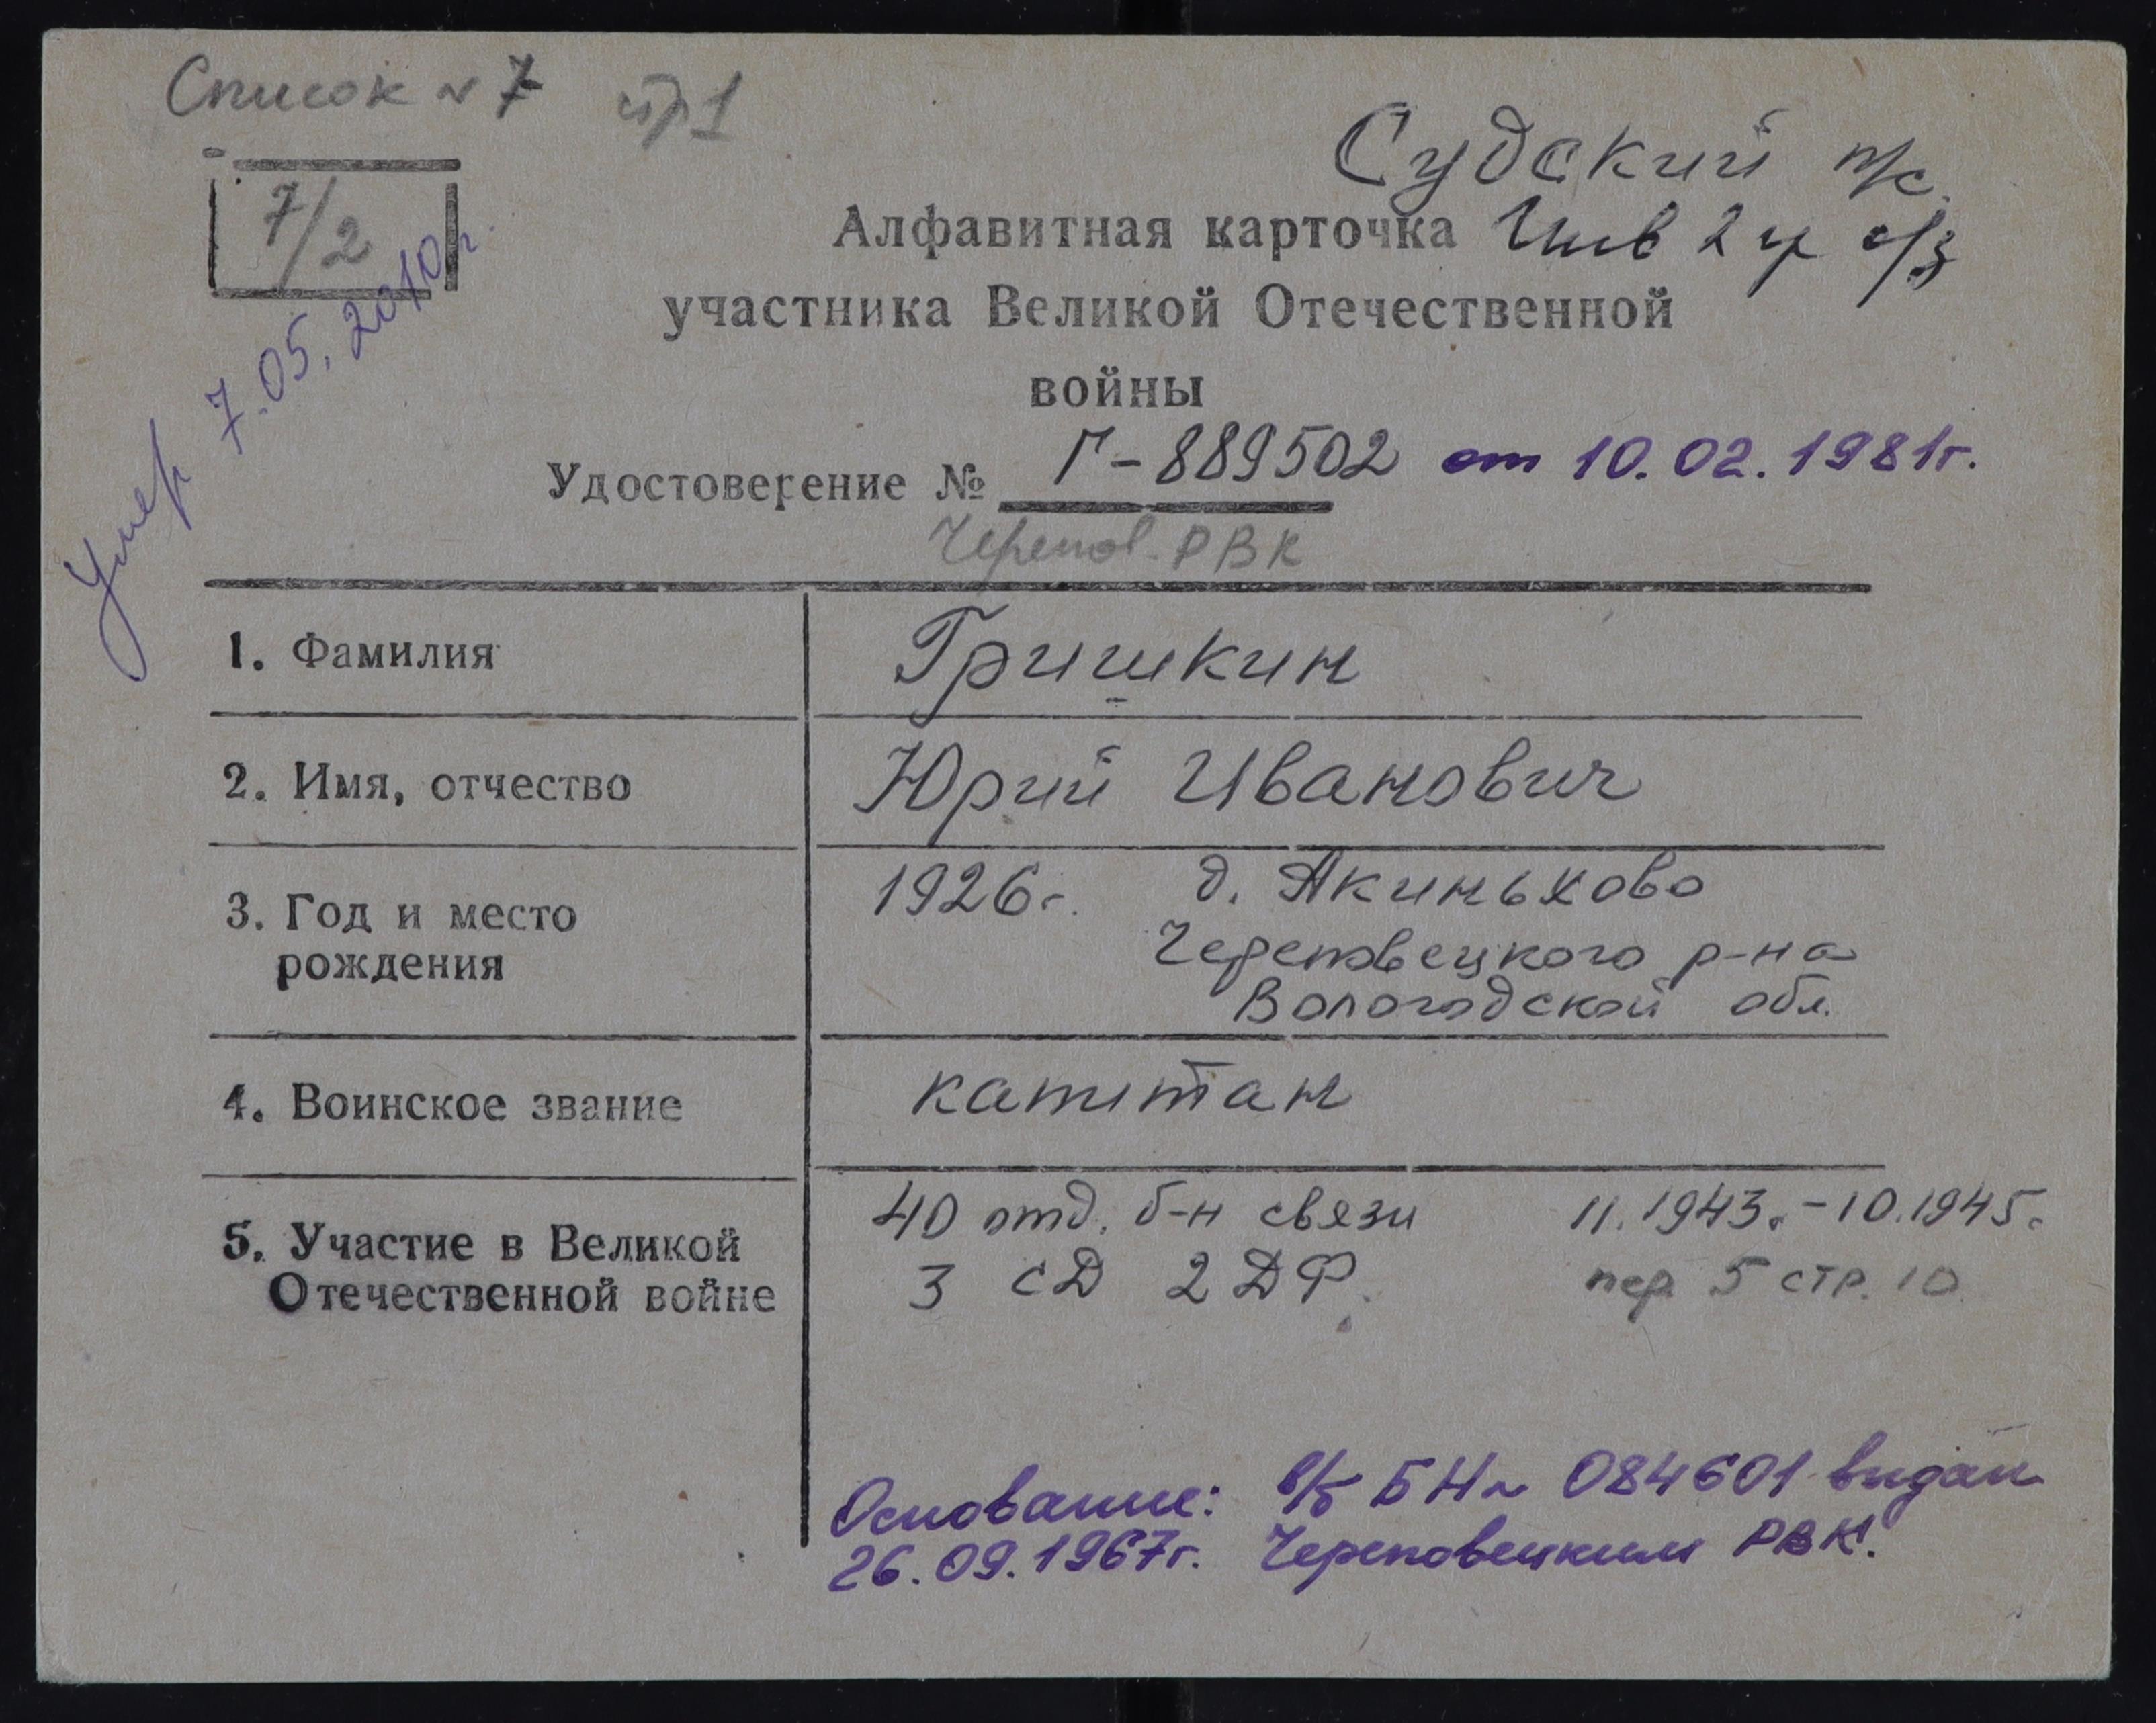 Список № 7 стр 1
Судский п/с.
7/2
Инв 2 гр о/з
Алфавитная карточка
участника Великой Отечественной
войны
Умер 7.05.2010г.
Удостоверение № Г-889502 от 10.02.1981г.
Черепов. РВК
1. Фамилия
Гришкин
2. Имя, отчество
Юрий Иванович
3. Год и место
рождения
1926г. д. Акиньхово
Череповецкого р-на
Вологодской обл.
4. Воинское звание
капитан
5. Участие в Великой
Отечественной войне
40 отд. б-н связи 11.1943г-10.1945г
3 СД 2 ДФ. пер 5 стр. 10
Основание: в/б БН № 084601 выдан
26.09.1967г. Череповецким РВК.